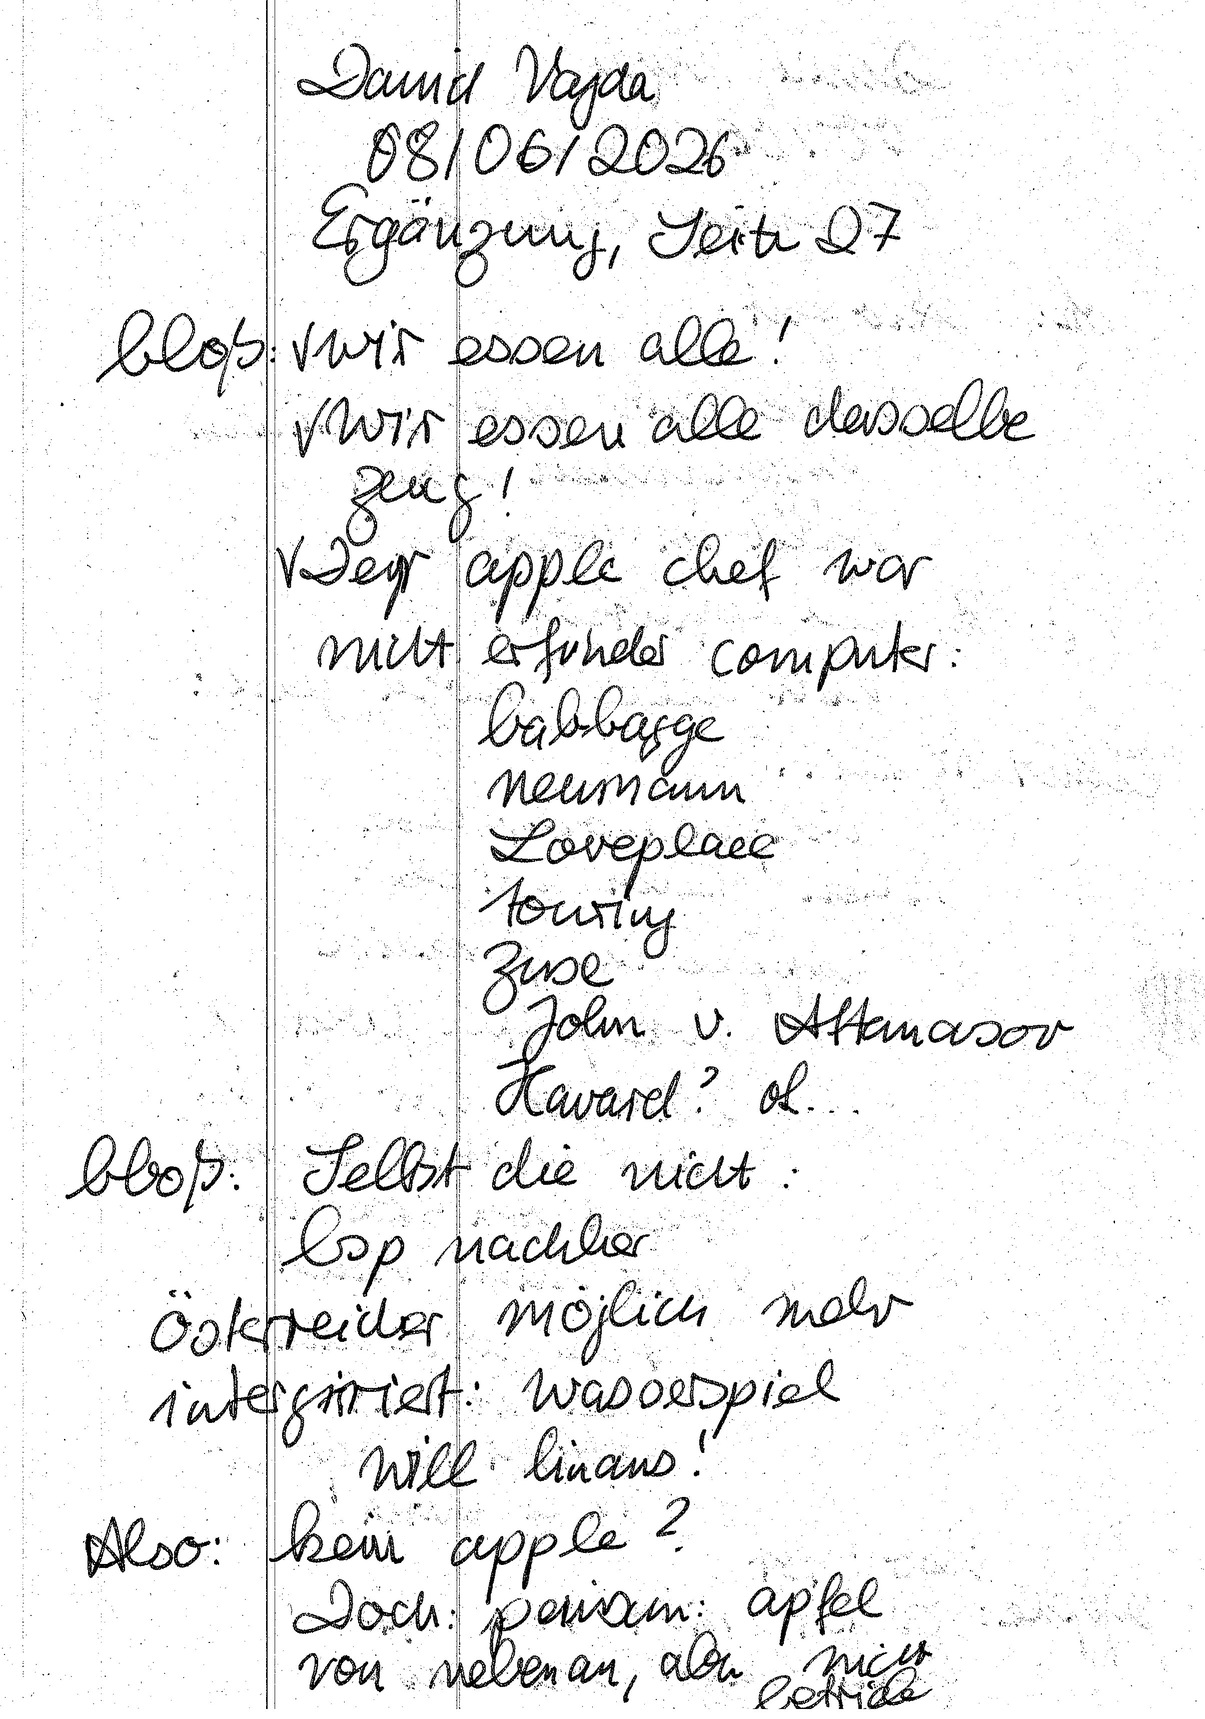 David Vajda
08/06/2026
Ergänzung, Seite 27
bloß: √wir essen alle!
√Wir essen alle dasselbe
zeug!
√Der apple chef war
nicht erfinder computer:
babbage
neumann
Loveplace
touring
Zuse
John v. Attanasov
Havard? od...
bloß: Selbst die nicht:
bsp nachher
Österreicher möglich mehr
intergriert: wasserspiel
will hinaus!
Also: kein apple?
Doch: apfel
von nebenan, aber nicht